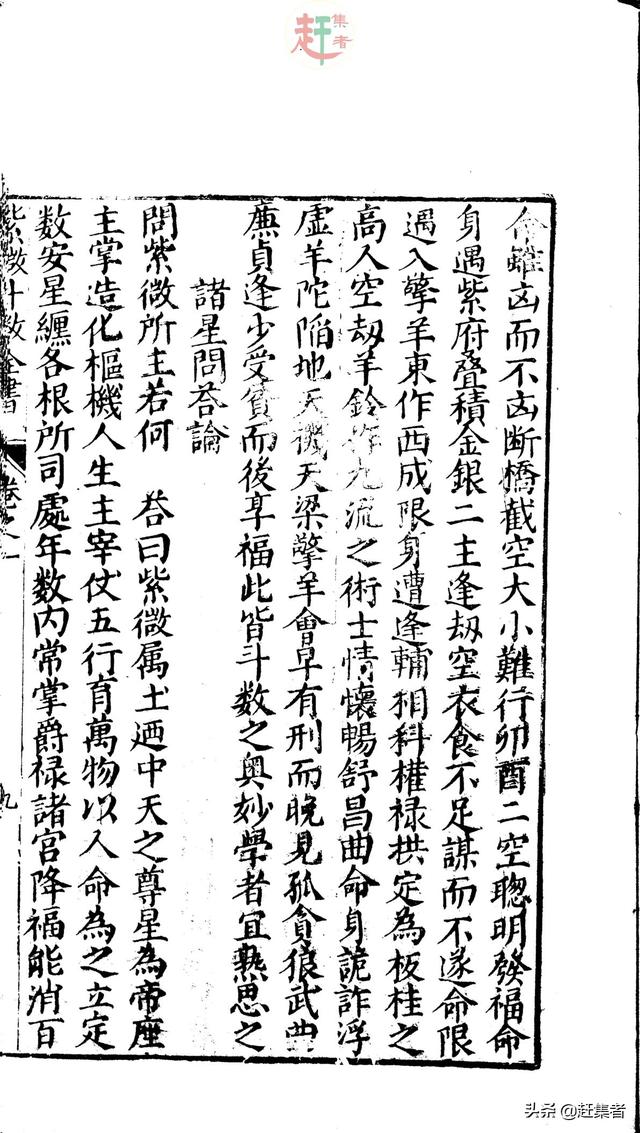 赶集者
命雖凶而不凶断橋截空大小難行卯酉二空聰明發福命
身遇紫府叠積金銀二主逢劫空衣食不足謀而不遂命限
遇入擎羊東作西成限身遭逢輔相科權禄拱定為板桂之
高人空劫羊鈴作九流之術士情懷暢舒昌曲命身詭詐浮
虚羊陀陷地天機天梁擎羊會早有刑而晚見孤貪狼武曲
廉貞逢少受貧而後享福此皆斗数之奥妙學者宜熟思之
諸星問荅論
問紫微所主若何 荅曰紫微属土廼中天之尊星為帝座
主掌造化樞機人生主宰仗五行育萬物以人命為之立定
数安星纏各根所司處年数内常掌爵禄諸宮降福能消百
紫微斗数全書 卷之一 九
头条 @赶集者